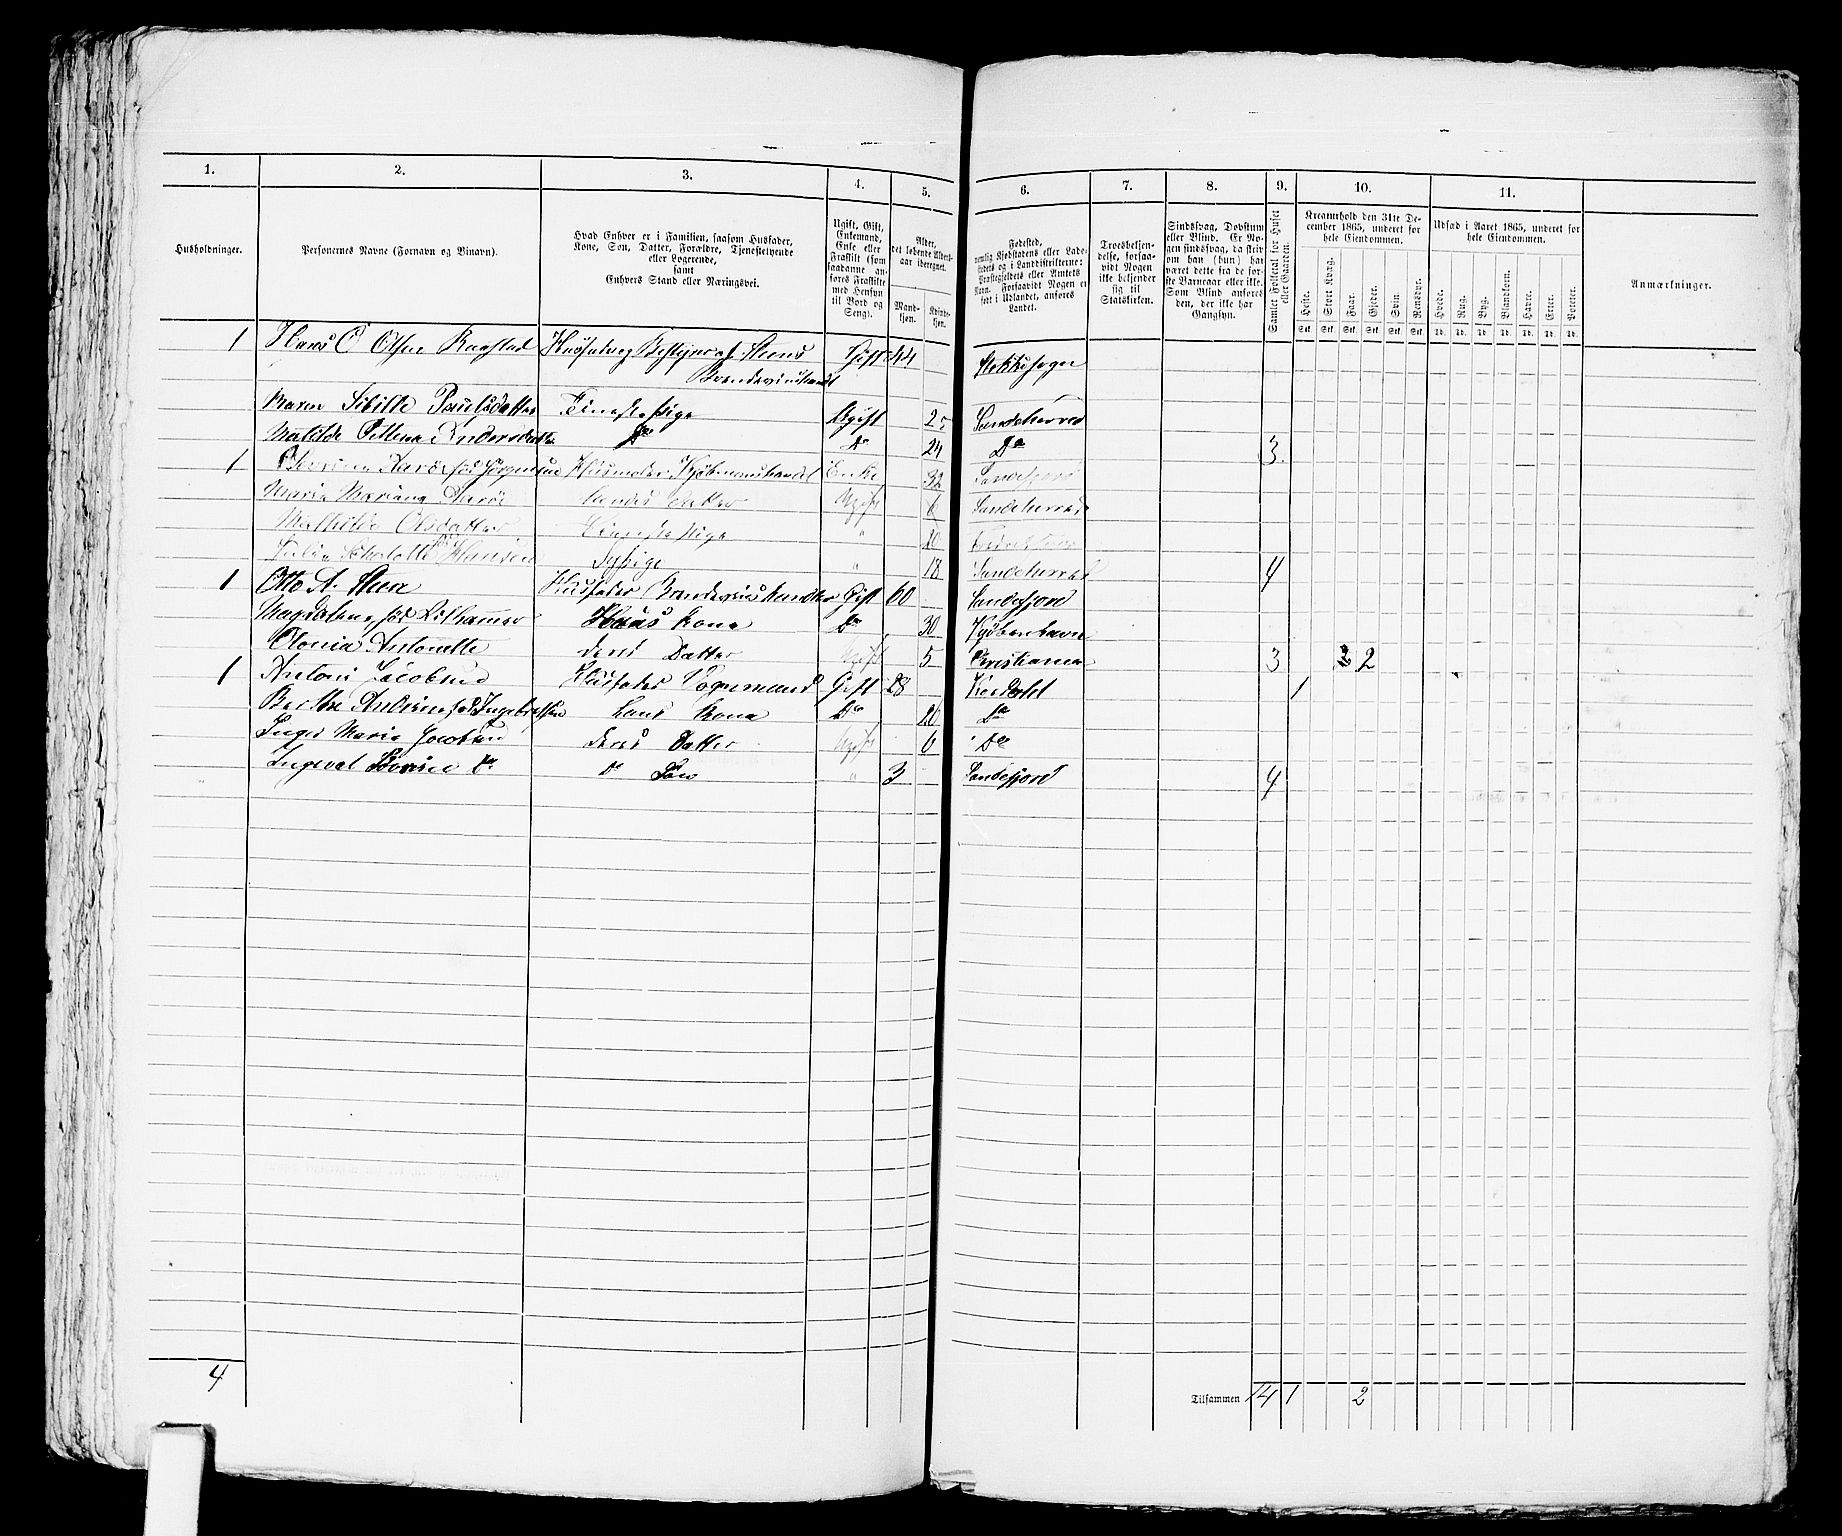 1. 2. 3. 4. 5. 6. 7. 8. 9. 10. 11.
Husholdninger.
Personernes Navne (Fornavn og Binavn).
Hvad Enhver er i Familien, saasom Husfader,
Kone, Søn, Datter, Forældre, Tjenestetyende
eller Logerende,
samt
Enhvers Stand eller Næringsvei.
Ugift, Gift,
Enkemand,
Enke eller
Fraskilt (som
saadanne anføres
Fraskilte
med Hensyn
til Bord og
Seng).
Alder,
det løbende Alders-
aar iberegnet.
Mand-
kjøn.
Kvinde-
kjøn.
Fødested,
nemlig Kjøbstadens eller Lade-
stedets og i Landdistrikterne:
Præstegjeldets eller Amtets
Navn. Forsaavidt Nogen er
født i Udlandet, anføres
Landet.
Troesbekjen-
delse, forsaa-
vidt Nogen
ikke bekjender
sig til
Statskirken.
Sindssvag, Døvstum
eller Blind. Er No-
gen sindssvag, da skriv
om han (hun) har
været dette fra de før-
ste Barneaar eller ikke.
Som Blind anføres
den, der ikke har
Gangsyn.
Samlet Folketal for Huset
eller Gaarden.
Kreaturhold den 31te De-
cember 1865, underet for
hele Eiendommen.
Heste. Stort Kvæg. Faar. Gjeder. Svin. Rensdyr.
Stk. Stk. Stk. Stk. Stk. Stk.
Udsæd i Aaret 1865, underet for
hele Eiendommen.
Hvede. Rug. Byg. Blandkorn. Havre. Erter. Poteter.
Td. Td. Td. Td. Td. Td. Td.
Anmærkninger.
1 Hans C Olsen Raastad Husfader, Bestyrer af Steens Gift 44 Stokke sogn
Brændevinshandel
Maren Sibille Paulsdatter Tjenestepige Ugift 25 Sandeherred
Matilde Andersdatter Do Do 24 Do 3
1 Jørgensen Husmoder, Kjøbmannshandel Enke 32 Sandefjord
Maria Mariana Datter Ugift 6 Sandeherred
Mathilde Olsdatter Tjenestepige " 20
Charlotte Hansen Sypige " 18 Sandeherred 4
1 Otto A. Steen Husfader Brændevinshandler Gift 60 Sandefjord
Magdalena fød Lilhammer Hans Kone Do 30 Kjøbenhavn
Antonette deres Datter Ugift 5 Christiania 3 2
1 Antoni Jacobsen Husfader Vognmand Gift 28 1
Berthe fød Ingebretsen hans Kone Do 26 Do
Inger Maria Jacobsen deres Datter Ugift 6 Do
Ingeval Do Do Søn " 3 Sandefjord 4
4 Tilsammen 14 1 2